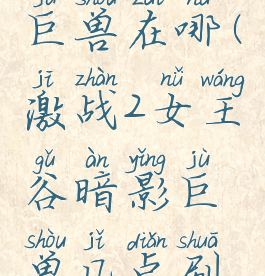 巨兽在哪(
jī zhàn nǚ wáng
激战2女王
gǔ àn yǐng jù
谷暗影巨
shòu jǐ diǎn shuā
兽几点刷